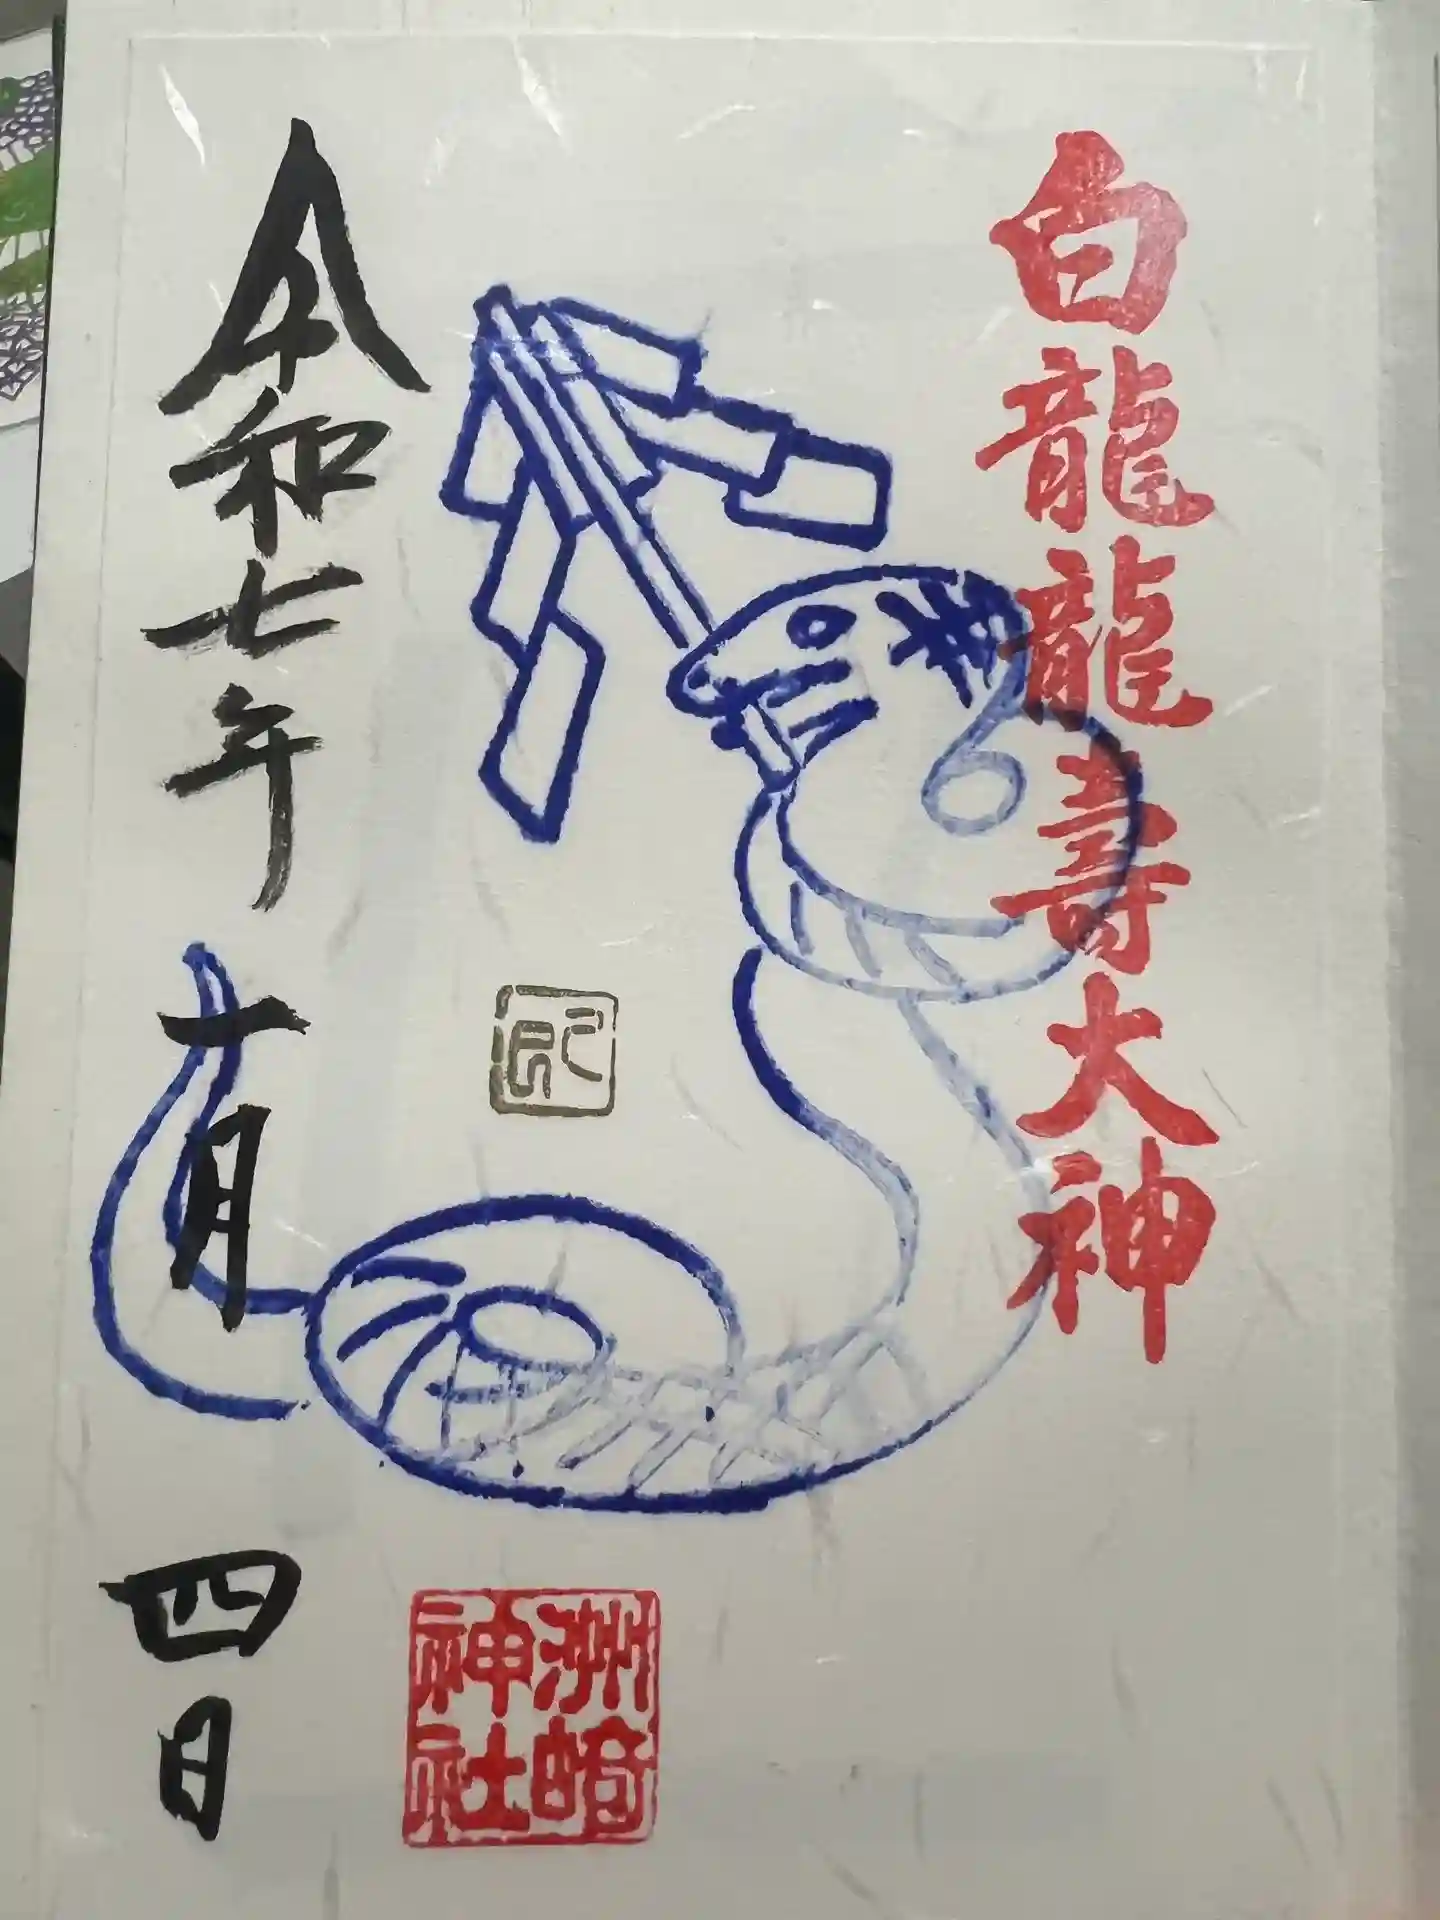 白龍龍壽大神
洲崎
神社
令和七年一月四日